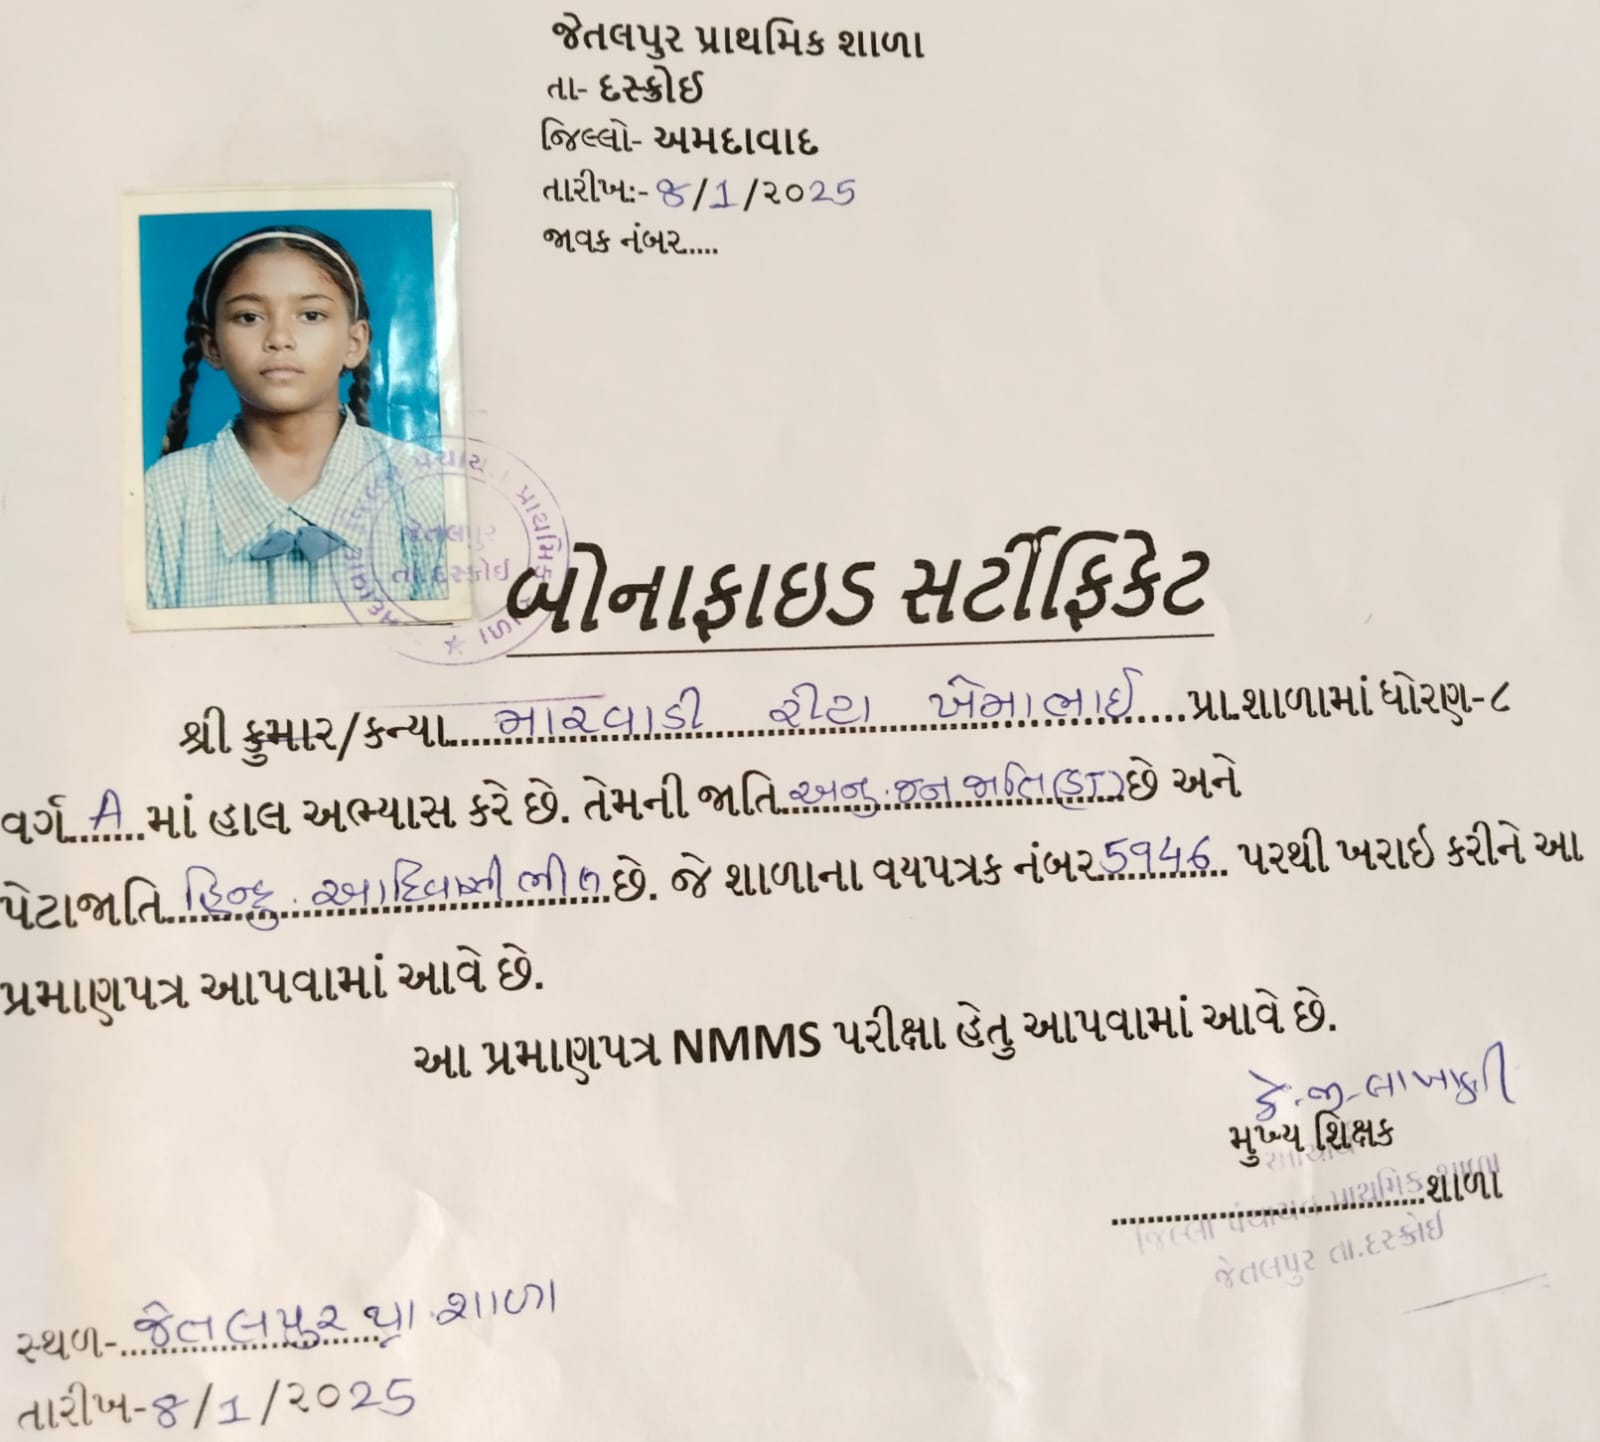 જેતલપુર પ્રાથમિક શાળા
તા- દસ્ક્રોઈ
જિલ્લો- અમદાવાદ
તારીખઃ- 8/1/૨૦25
જાવક નંબર.....
જેતલપુર
તા.દસ્ક્રોઈ
બોનાફાઇડ સર્ટીફિકેટ
શ્રી કુમાર/કન્યા....મારવાડી રીટા ખેમાભાઈ.....પ્રા.શાળામાં ધોરણ-૮
વર્ગ..A...માં હાલ અભ્યાસ કરે છે. તેમની જાતિ..અનુ.જન જાતિ(ST)..છે અને
પેટાજાતિ..હિન્દુ. આદિવાસી ભીલ..છે. જે શાળાના વયપત્રક નંબર.5946.. પરથી ખરાઇ કરીને આ
પ્રમાણપત્ર આપવામાં આવે છે.
આ પ્રમાણપત્ર NMMS પરીક્ષા હેતુ આપવામાં આવે છે.
કે.જી.લાખાણી
મુખ્ય શિક્ષક
આચાર્ય
..............................શાળા
જિલ્લા પંચાયત પ્રાથમિક શાળા
જેતલપુર તા.દસ્ક્રોઈ
સ્થળ-..જેતલપુર પ્રા.શાળા
તારીખ-8/1/૨૦25